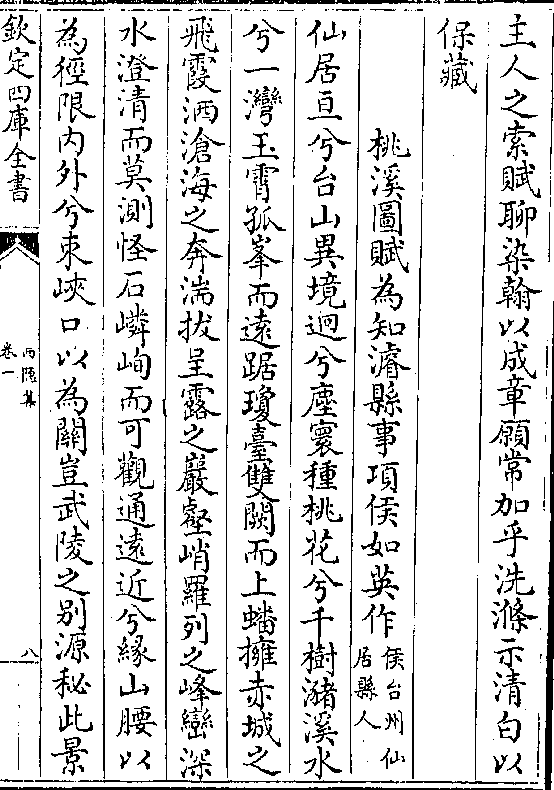 主人之索賦聊染翰以成章願常加乎洗滌示清白以
保藏
桃溪圖賦為知濬縣事項侯如英作侯台州仙居縣人
仙居亘兮台山異境迥兮塵寰種桃花兮千樹瀦溪水
兮一灣玉霄孤峯而遠踞瓊臺雙闕而上蟠擁赤城之
飛霞洒滄海之奔湍拔呈露之巖壑峭羅列之峰巒深
水澄清而莫測怪石嶙峋而可觀通遠近兮緣山腰以
為徑限內外兮束峽口以為關豈武陵之別源秘此景
欽定四庫全書
西隱集
卷一
八